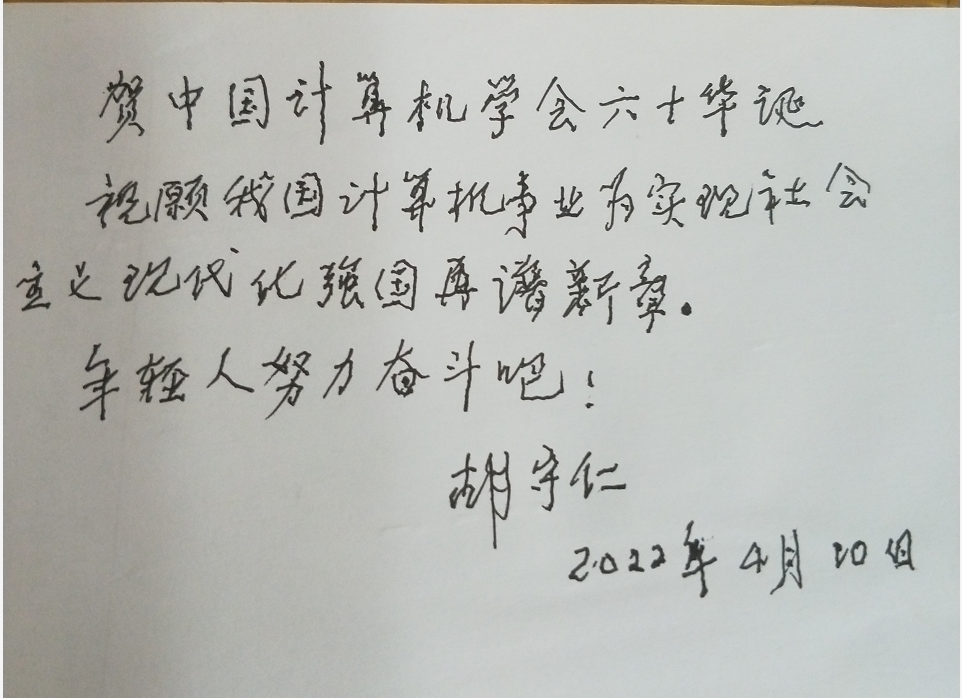 贺中国计算机学会六十华诞
祝愿我国计算机事业为实现社会
主义现代化强国再谱新章。
年轻人努力奋斗吧！
胡守仁
2022年4月20日